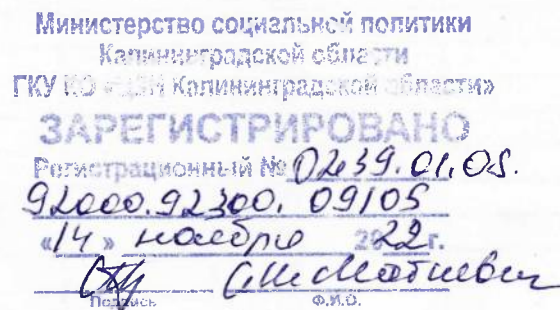 Министерство социальной политики
Калининградской области
ГКУ КО «ЦЗН Калининградской области»
ЗАРЕГИСТРИРОВАНО
Регистрационный № 0239.01.05.
92000.92300. 09/05
«14» ноября 2022г.
Подпись Ф.И.О.